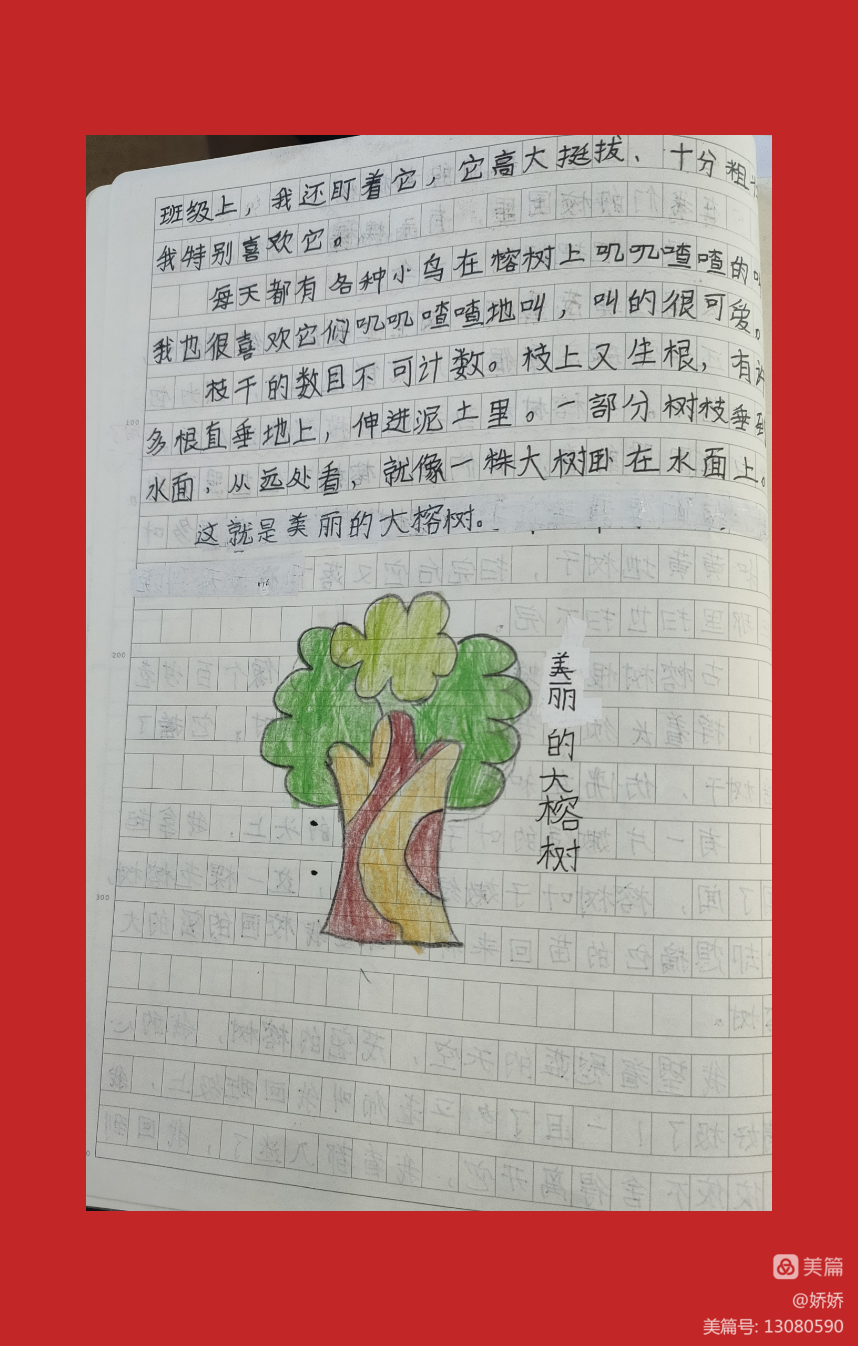 班级上，我还盯着它，它高大挺拔、十分粗
我特别喜欢它。
每天都有各种小鸟在榕树上叽叽喳喳的叫
我也很喜欢它们叽叽喳喳地叫，叫的很可爱。
枝干的数目不可计数。枝上又生根，有许
多根直垂地上，伸进泥土里。一部分树枝垂到
水面，从远处看，就像一株大树卧在水面上。
这就是美丽的大榕树。
美丽的大榕树
100
200
300
美篇
@娇娇
美篇号: 13080590